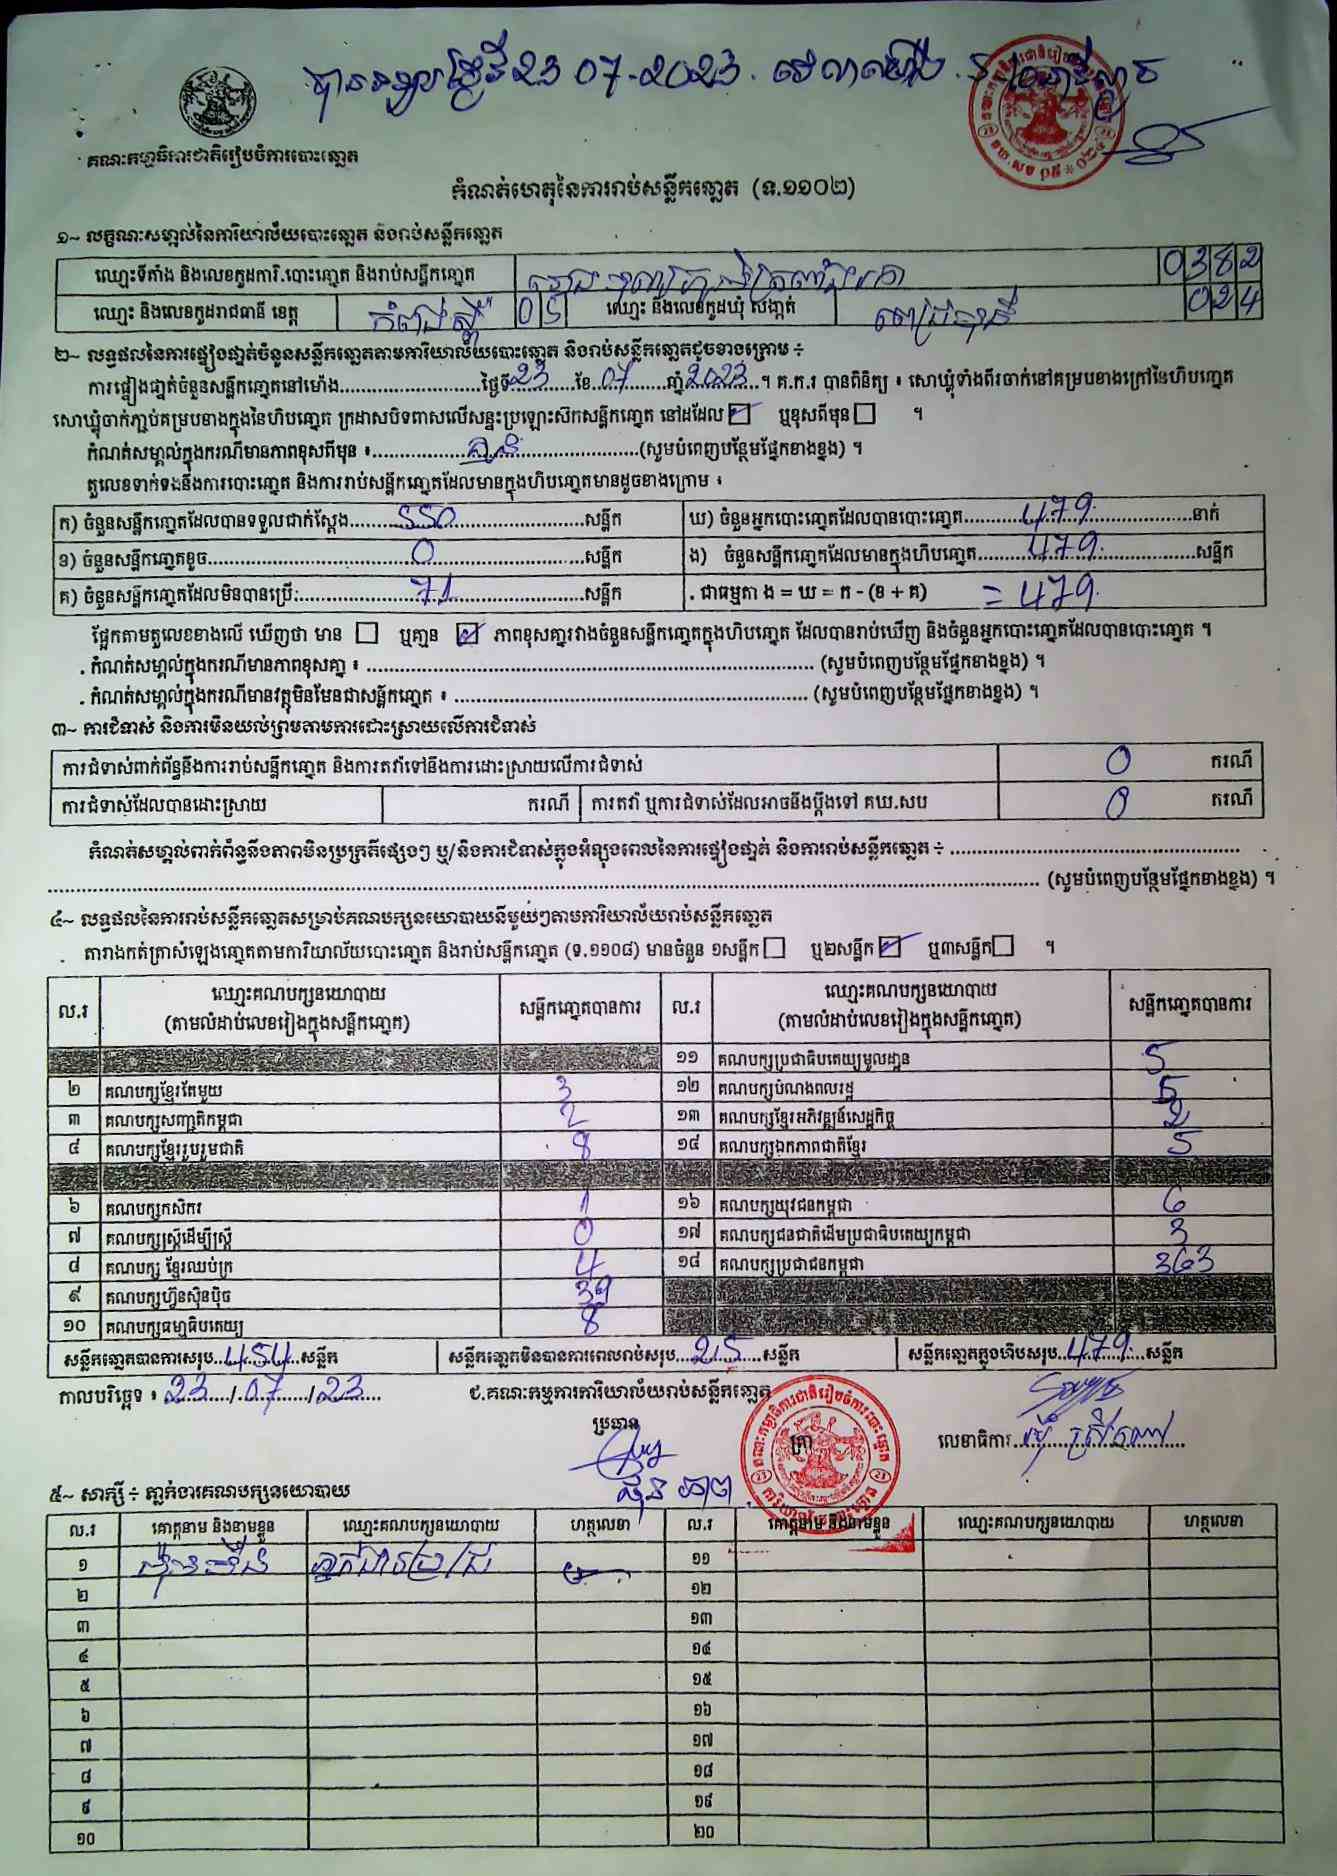 បានទទួលថ្ងៃទី23 07-2023
គណៈកម្មាធិការជាតិរៀបចំការបោះឆ្នោត
កំណត់ហេតុនៃការរាប់សន្លឹកឆ្នោត (ទ.១១០២)
១~ លក្ខណៈសម្គាល់នៃការិយាល័យបោះឆ្នោត និងរាប់សន្លឹកឆ្នោត
ឈ្មោះទីតាំង និងលេខកូដការិ.បោះឆ្នោត និងរាប់សន្លឹកឆ្នោត 0382
ឈ្មោះ និងលេខកូដរាជធានី ខេត្ត កំពង់ស្ពឺ 05 ឈ្មោះ និងលេខកូដឃុំ សង្កាត់ 024
២~ លទ្ធផលនៃការផ្ទៀងផ្ទាត់ចំនួនសន្លឹកឆ្នោតតាមការិយាល័យបោះឆ្នោត និងរាប់សន្លឹកឆ្នោតដូចខាងក្រោម ÷
ការផ្ទៀងផ្ទាត់ចំនួនសន្លឹកឆ្នោតនៅម៉ោង..........ថ្ងៃទី23 ខែ 07 ឆ្នាំ2023 ។ គ.ក.រ បានពិនិត្យ ៖ សោឃ្លុំទាំងពីរចាក់នៅគម្របខាងក្រៅនៃហិបឆ្នោត
សោឃ្លុំចាក់ភ្ជាប់គម្របខាងក្នុងនៃហិបឆ្នោត ក្រដាសបិទពាសលើសន្ទះប្រឡោះស៊កសន្លឹកឆ្នោត នៅដដែល ☑ ឬខុសពីមុន ☐ ។
កំណត់សម្គាល់ក្នុងករណីមានភាពខុសពីមុន ៖ គ្មាន (សូមបំពេញបន្ថែមផ្នែកខាងខ្នង) ។
តួលេខទាក់ទងនឹងការបោះឆ្នោត និងការរាប់សន្លឹកឆ្នោតដែលមានក្នុងហិបឆ្នោតមានដូចខាងក្រោម ៖
ក) ចំនួនសន្លឹកឆ្នោតដែលបានទទួលជាក់ស្តែង 550 សន្លឹក ឃ) ចំនួនអ្នកបោះឆ្នោតដែលបានបោះឆ្នោត 479 នាក់
ខ) ចំនួនសន្លឹកឆ្នោតខូច 0 សន្លឹក ង) ចំនួនសន្លឹកឆ្នោតដែលមានក្នុងហិបឆ្នោត 479 សន្លឹក
គ) ចំនួនសន្លឹកឆ្នោតដែលមិនបានប្រើ: 71 សន្លឹក . ជាធម្មតា ង = ឃ = ក - (ខ + គ) = 479
ផ្អែកតាមតួលេខខាងលើ ឃើញថា មាន ☐ ឬគ្មាន ☑ ភាពខុសគ្នារវាងចំនួនសន្លឹកឆ្នោតក្នុងហិបឆ្នោត ដែលបានរាប់ឃើញ និងចំនួនអ្នកបោះឆ្នោតដែលបានបោះឆ្នោត ។
. កំណត់សម្គាល់ក្នុងករណីមានភាពខុសគ្នា ៖ .......... (សូមបំពេញបន្ថែមផ្នែកខាងខ្នង) ។
. កំណត់សម្គាល់ក្នុងករណីមានវត្ថុមិនមែនជាសន្លឹកឆ្នោត ៖ .......... (សូមបំពេញបន្ថែមផ្នែកខាងខ្នង) ។
៣~ ការជំទាស់ និងការមិនយល់ព្រមតាមការដោះស្រាយលើការជំទាស់
ការជំទាស់ពាក់ព័ន្ធនឹងការរាប់សន្លឹកឆ្នោត និងការតវ៉ាទៅនឹងការដោះស្រាយលើការជំទាស់ 0 ករណី
ការជំទាស់ដែលបានដោះស្រាយ ករណី ការតវ៉ា ឬការជំទាស់ដែលអាចនឹងប្តឹងទៅ គឃ.សប 0 ករណី
កំណត់សម្គាល់ពាក់ព័ន្ធនឹងភាពមិនប្រក្រតីផ្សេងៗ ឬ/និងការជំទាស់ក្នុងអំឡុងពេលនៃការផ្ទៀងផ្ទាត់ និងការរាប់សន្លឹកឆ្នោត ÷ ..........
.......... (សូមបំពេញបន្ថែមផ្នែកខាងខ្នង) ។
៤~ លទ្ធផលនៃការរាប់សន្លឹកឆ្នោតសម្រាប់គណបក្សនយោបាយនីមួយៗតាមការិយាល័យរាប់សន្លឹកឆ្នោត
តារាងកត់ត្រាសំឡេងឆ្នោតតាមការិយាល័យបោះឆ្នោត និងរាប់សន្លឹកឆ្នោត (ទ.១១០៨) មានចំនួន ១សន្លឹក ☐ ឬ២សន្លឹក ☑ ឬ៣សន្លឹក ☐ ។
ល.រ ឈ្មោះគណបក្សនយោបាយ (តាមលំដាប់លេខរៀងក្នុងសន្លឹកឆ្នោត) សន្លឹកឆ្នោតបានការ ល.រ ឈ្មោះគណបក្សនយោបាយ (តាមលំដាប់លេខរៀងក្នុងសន្លឹកឆ្នោត) សន្លឹកឆ្នោតបានការ
១១ គណបក្សប្រជាធិបតេយ្យមូលដ្ឋាន 5
២ គណបក្សខ្មែរតែមួយ 3 ១២ គណបក្សបំណងពលរដ្ឋ 5
៣ គណបក្សសញ្ជាតិកម្ពុជា 2 ១៣ គណបក្សខ្មែរអភិវឌ្ឍន៍សេដ្ឋកិច្ច 2
៤ គណបក្សខ្មែររួបរួមជាតិ 8 ១៤ គណបក្សឯកភាពជាតិខ្មែរ 5
៦ គណបក្សកសិករ 1 ១៦ គណបក្សយុវជនកម្ពុជា 6
៧ គណបក្សស្ត្រីដើម្បីស្ត្រី 0 ១៧ គណបក្សជនជាតិដើមប្រជាធិបតេយ្យកម្ពុជា 3
៨ គណបក្ស ខ្មែរឈប់ក្រ 4 ១៨ គណបក្សប្រជាជនកម្ពុជា 363
៩ គណបក្សហ៊្វុនស៊ិនប៉ិច 39
១០ គណបក្សធម្មាធិបតេយ្យ 8
សន្លឹកឆ្នោតបានការសរុប 454 សន្លឹក សន្លឹកឆ្នោតមិនបានការពេលរាប់សរុប 25 សន្លឹក សន្លឹកឆ្នោតក្នុងហិបសរុប 479 សន្លឹក
កាលបរិច្ឆេទ ៖ 23/07/23 ជ.គណៈកម្មការការិយាល័យរាប់សន្លឹកឆ្នោត
ប្រធាន ត្រា លេខាធិការ
៥~ សាក្សី ÷ ភ្នាក់ងារគណបក្សនយោបាយ
ល.រ គោត្តនាម និងនាមខ្លួន ឈ្មោះគណបក្សនយោបាយ ហត្ថលេខា ល.រ គោត្តនាម និងនាមខ្លួន ឈ្មោះគណបក្សនយោបាយ ហត្ថលេខា
១ ១១
២ ១២
៣ ១៣
៤ ១៤
៥ ១៥
៦ ១៦
៧ ១៧
៨ ១៨
៩ ១៩
១០ ២០